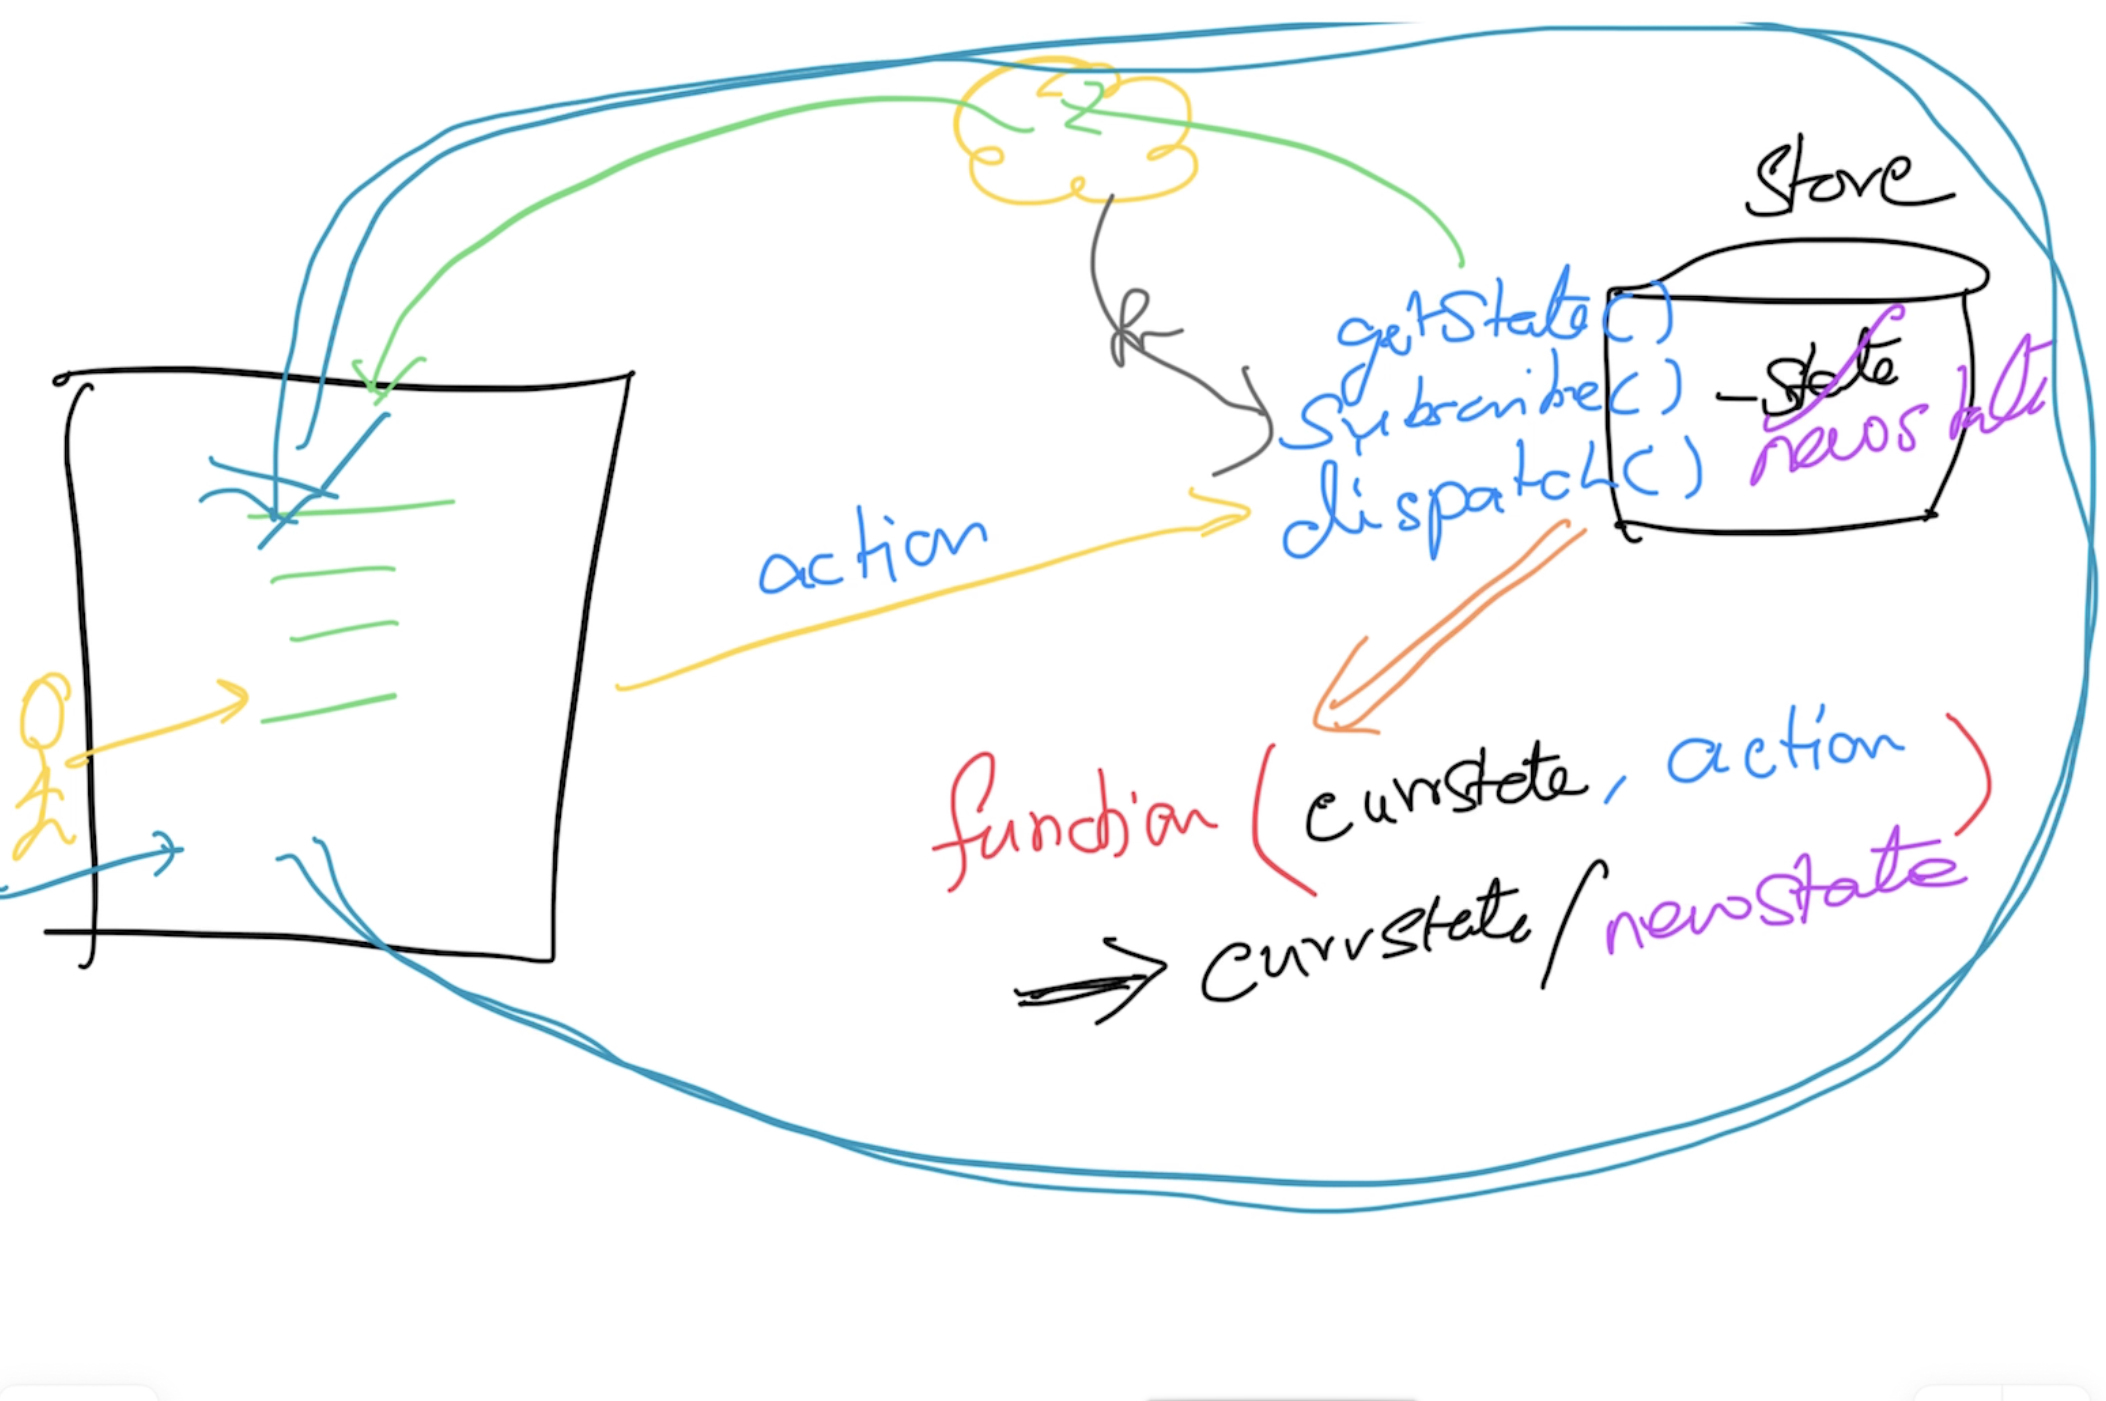 2
Store
fn
getState()
Subscribe()
dispatch()
-state
newstate
action
function (currstate, action)
currstate/newstate